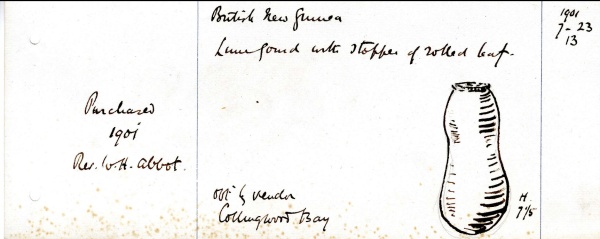 British New Guinea
Lime gourd with stopper of rolled leaf.
1901
7-23
13
Purchased
1901
Rev. W. H. Abbot.
obt. by vendor
Collingwood Bay
H.